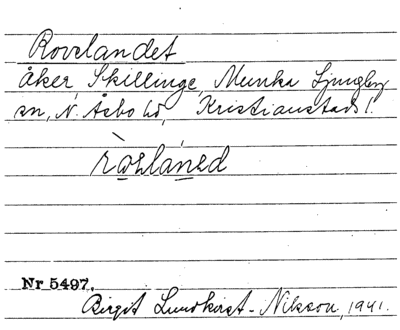 Rovelandet
Åker, Skillinge, Munka Ljungby
sn, N. Åsbo hd, Kristianstads l.
Nr 5497.
Birgit Lundkvist-Nilsson, 1941.